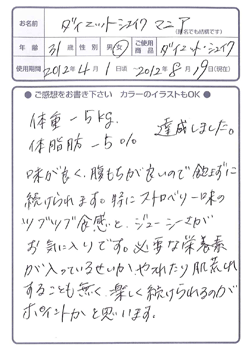 お名前 ダイエットシェイク マニア
(匿名でも結構です)
年齢 31歳 性別 男・女 ご使用商品 ダイエット・シェイク
使用期間 2012年4月1日頃~2012年8月19日(現在)
●ご感想をお書き下さい カラーのイラストもOK●
体重 −5kg.
体脂肪 −5% 達成しました。
味が良く、腹もちが良いので飽きずに
続けられます。特にストロベリー味の
ツブツブ食感と、ジューシーさが
お気に入りです。必要な栄養素
が入っているせいかやつれたり肌荒れ
することも無く、楽しく続けられるのが
ポイントかと思います。